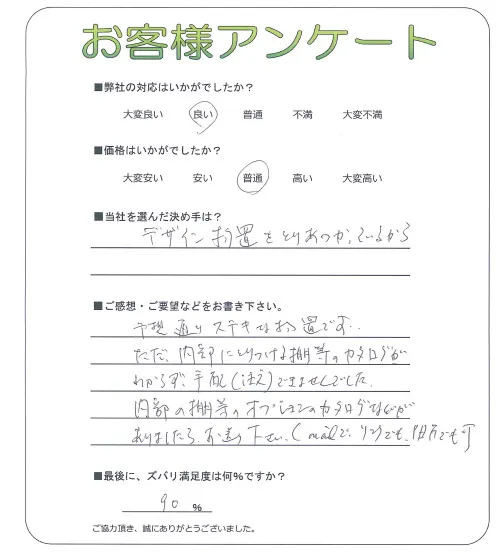 お客様アンケート
■弊社の対応はいかがでしたか？
大変良い 良い 普通 不満 大変不満
■価格はいかがでしたか？
大変安い 安い 普通 高い 大変高い
■当社を選んだ決め手は？
デザイン物置をとりあつかっているから
■ご感想・ご要望などをお書き下さい。
予想通りステキなお物置です。
ただ、内部にとりつける棚等のカタログが
わからず、手配(注文)できませんでした。
内部の棚等のオプションのカタログなどが
ありましたら、お送り下さい。(mailで、リンクでも、可
■最後に、ズバリ満足度は何％ですか？
90 %
ご協力頂き、誠にありがとうございました。